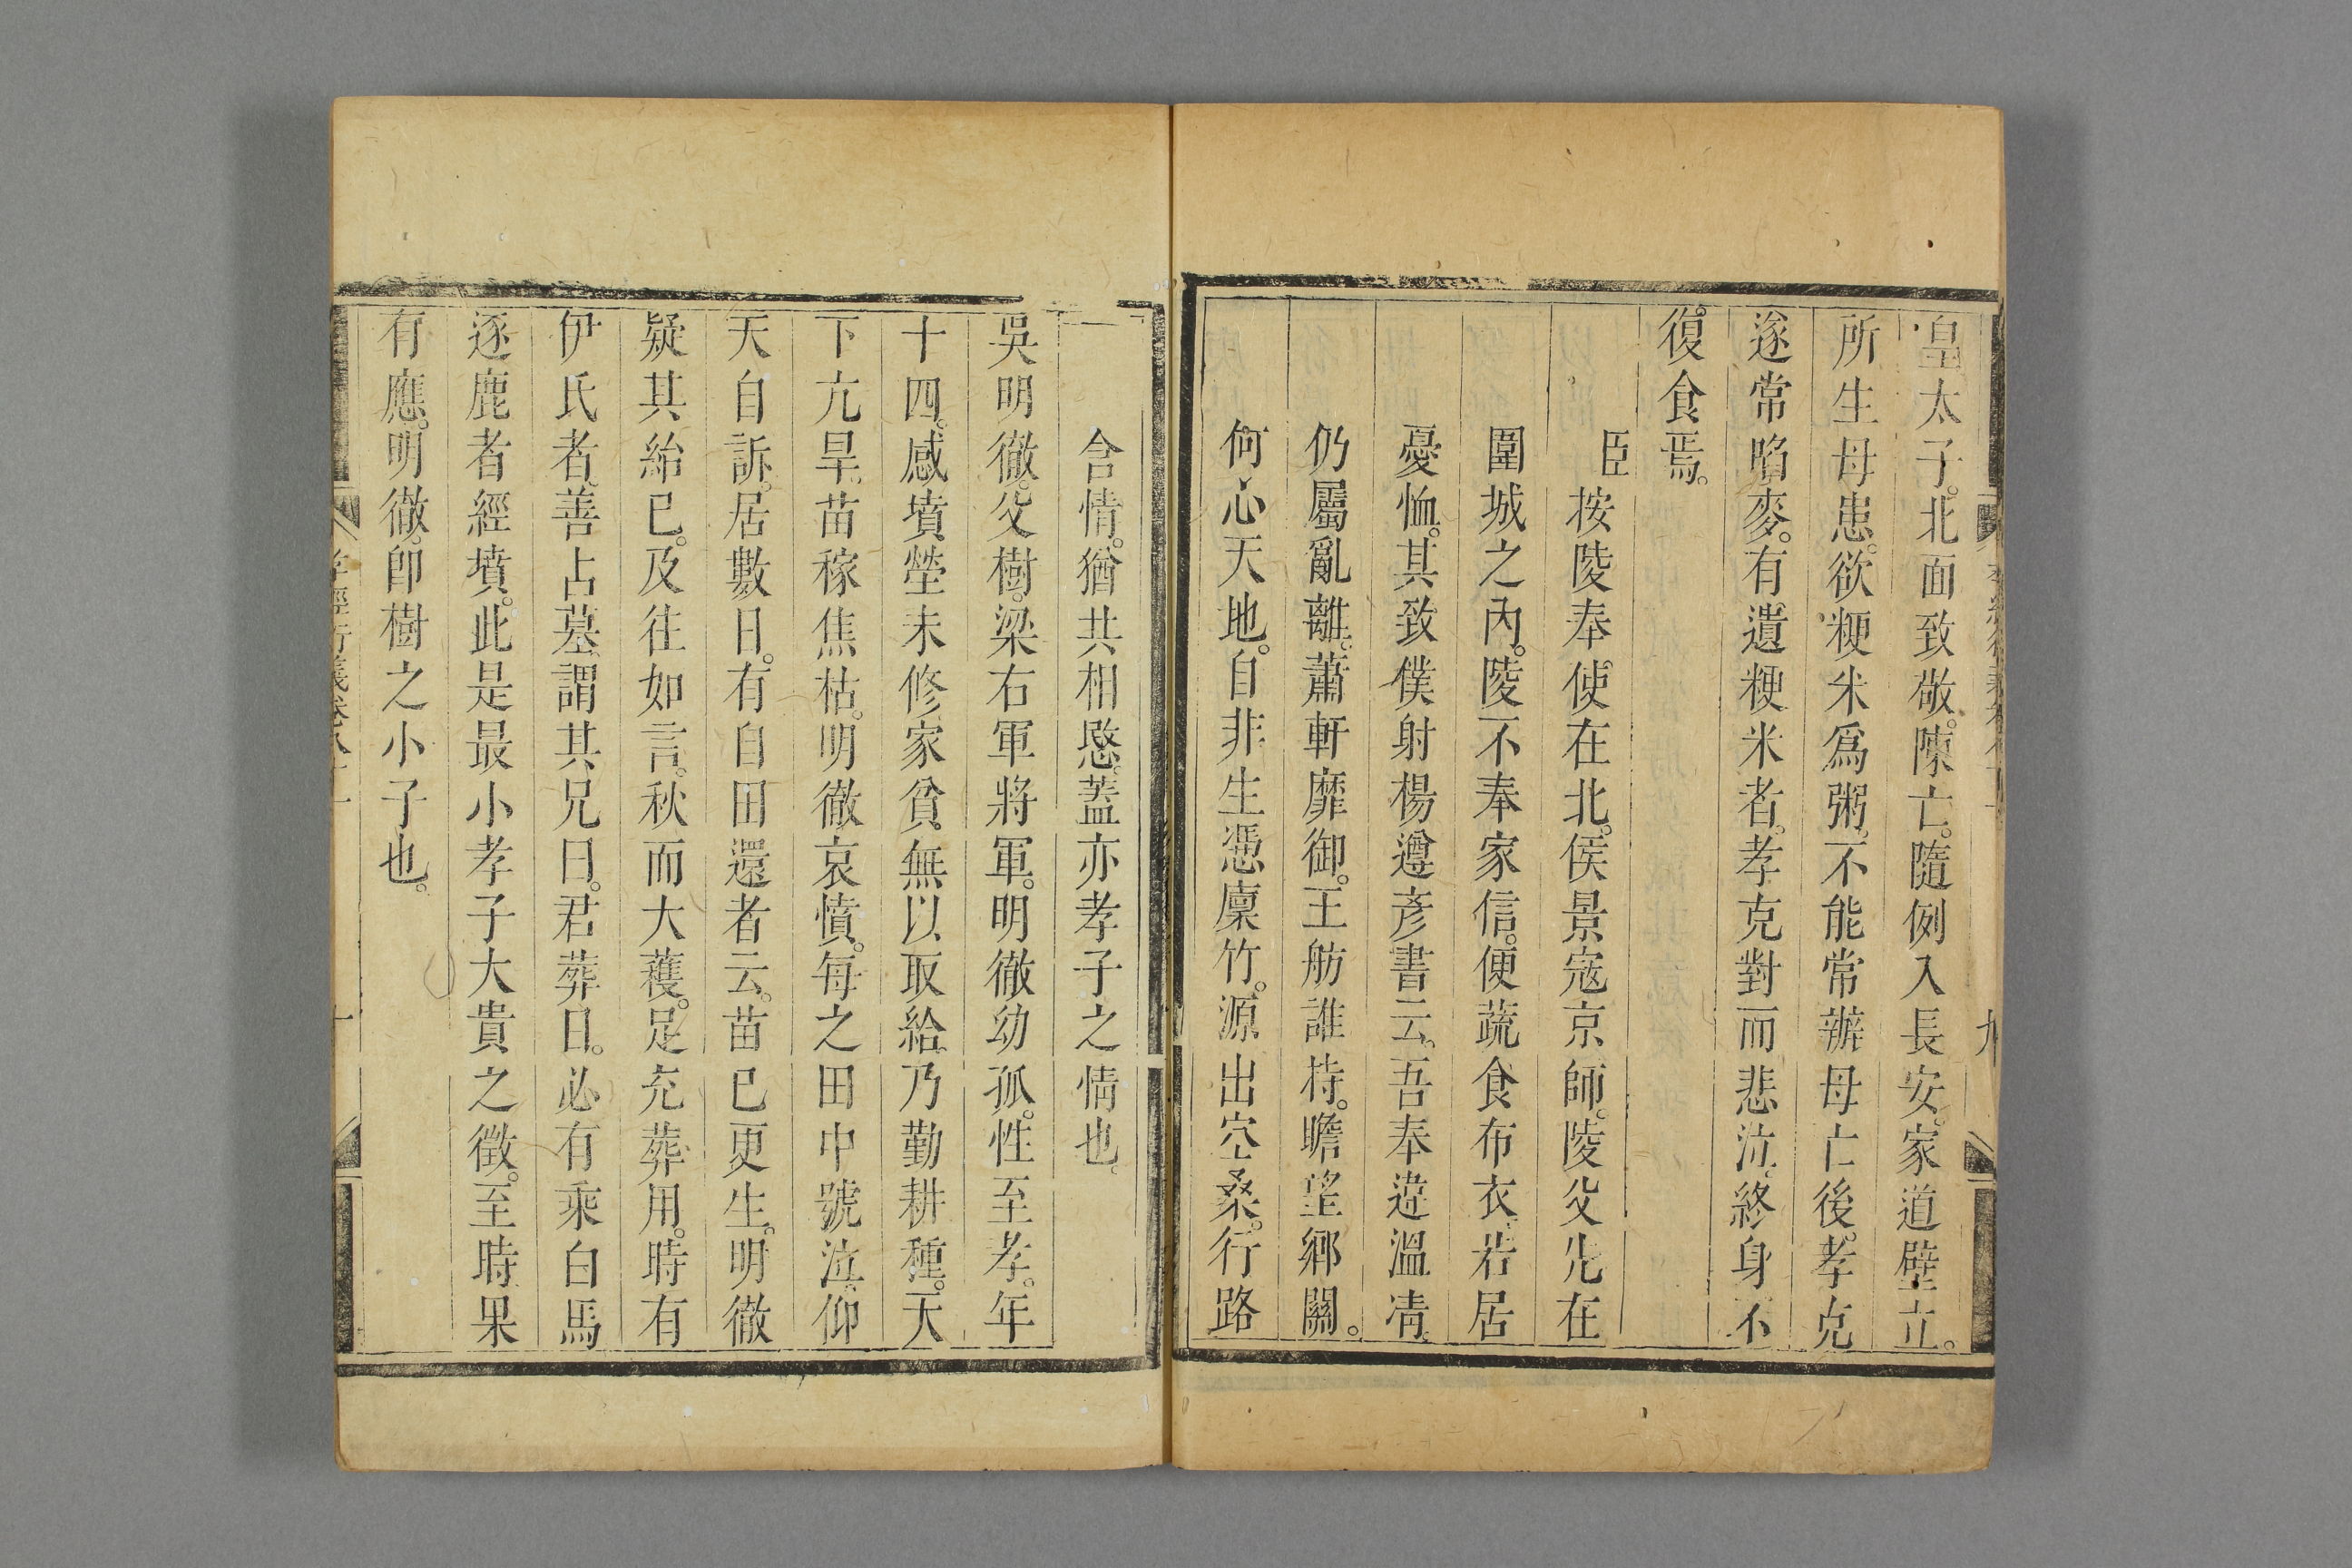 皇太子。北面致敬。陳亡。隨例入長安。家道壁立。
所生母患。欲粳米爲粥。不能常辦。母亡後。孝克
遂常啗麥。有遺粳米者。孝克對而悲泣。終身不
復食焉。
臣按陵奉使在北。侯景寇京師。陵父先在
圍城之內。陵不奉家信。便蔬食布衣。若居
憂恤。其致僕射楊遵彥書云。吾奉違溫凊。
仍屬亂離。蕭軒靡御。王舫誰持。瞻望鄉關。
何心天地。自非生憑廩竹。源出空桑。行路
含情。猶共相愍。蓋亦孝子之情也。
吳明徹。父樹。梁右軍將軍。明徹幼孤。性至孝。年
十四。感墳塋未修。家貧。無以取給。乃勤耕種。天
下亢旱。苗稼焦枯。明徹哀憤。每之田中號泣。仰
天自訴。居數日。有自田還者云。苗已更生。明徹
疑其紿已。及往如言。秋而大蓰。足充葬用。時有
伊氏者。善占墓。謂其兄曰。君葬日。必有乘白馬
逐鹿者經墳。此是最小孝子大貴之徵。至時果
有應。明徹。卽樹之小子也。